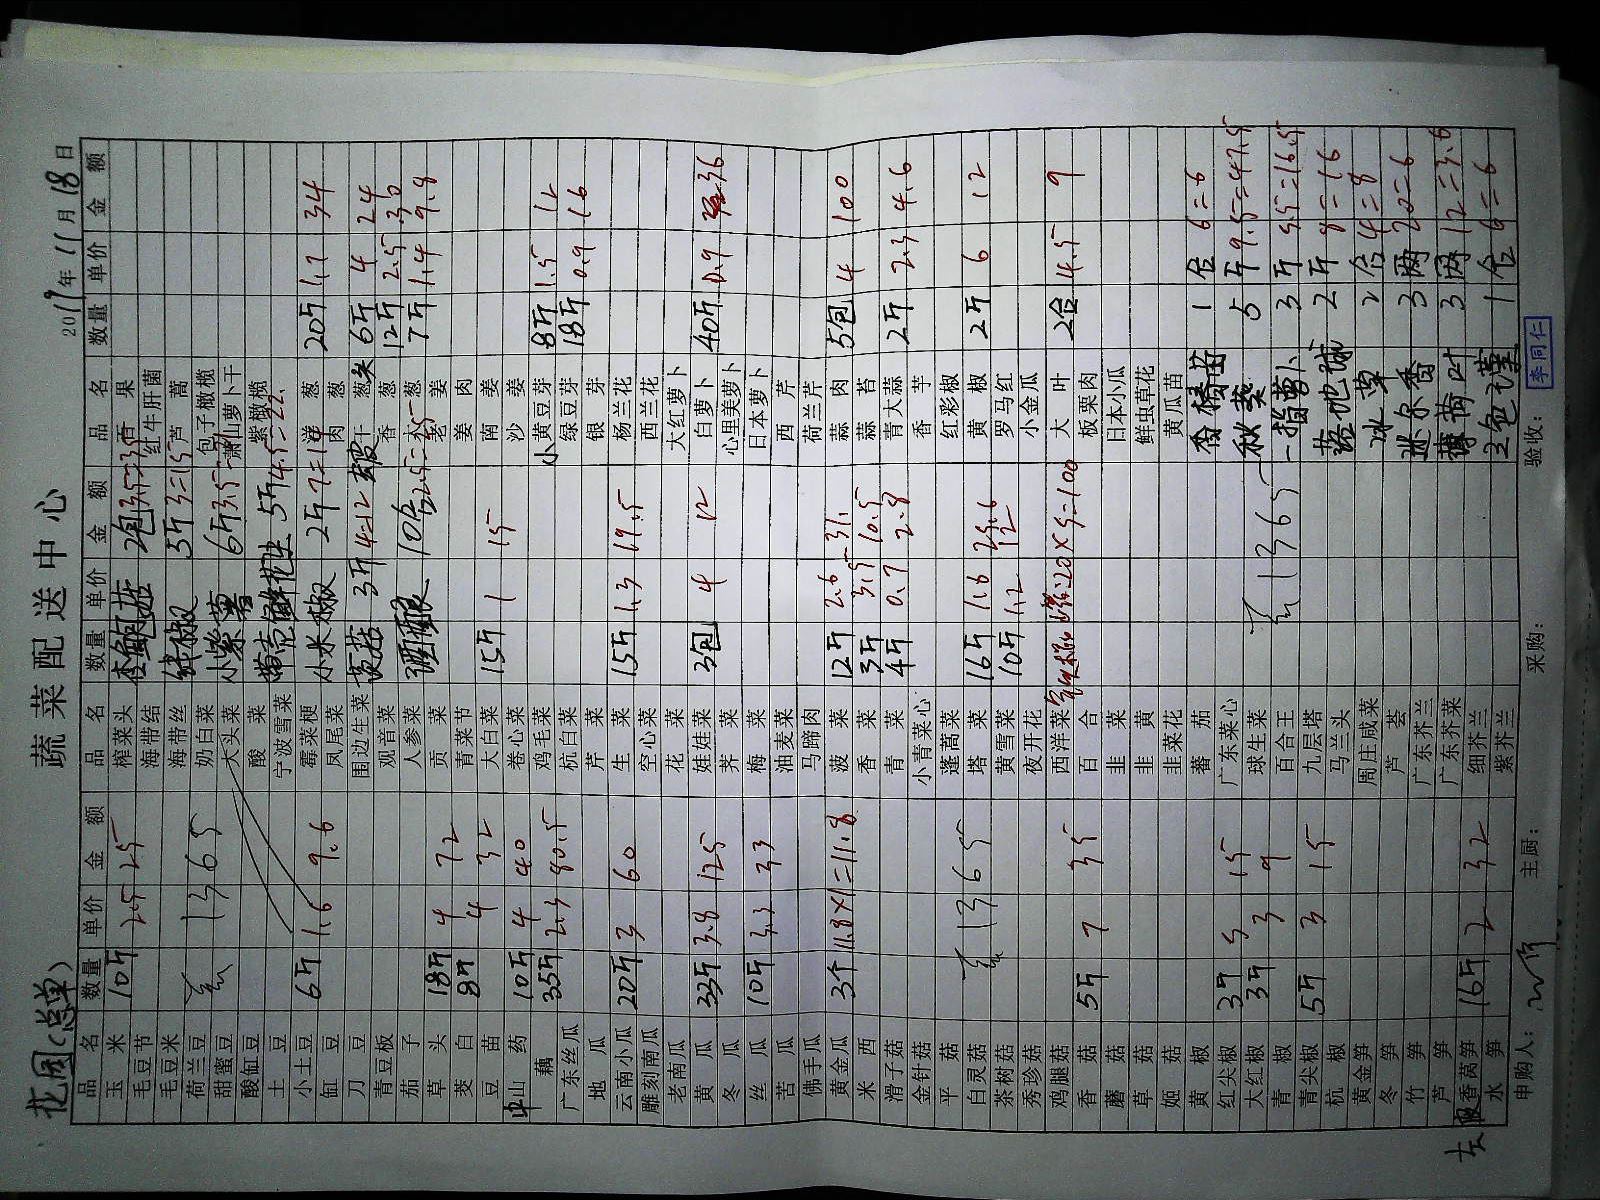 蔬菜配送中心
花园(总单)
2017年11月18日
品名 数量 单价 金额 品名 数量 单价 金额 品名 数量 单价 金额
玉米 10斤 2.5 25 榨菜头 杏鲍菇 2包 果
毛豆节 海带结 红牛肝菌
毛豆米 海带丝 线椒 5斤 3=15 芦蒿
荷兰豆 奶白菜 包子橄榄
甜蜜豆 1365 大头菜 小紫薯 6斤 3.5 萧山萝卜干
酸缸豆 酸菜 紫橄榄
土豆 宁波雪菜 5斤 4.5=22.
小土豆 6斤 1.6 9.6 霉菜梗 小米椒 2斤 7=14 洋葱 20斤 1.7 34
缸豆 凤尾菜 肉葱
刀豆 围边生菜 3斤 4=12 葱头 6斤 4 24
青豆板 观音菜 香葱 12斤 2.5 30
茄子 人参菜 酒酿 10合 2.5= 葱 7斤 1.4 9.8
草头 18斤 4 72 贡菜 老姜
茭白 8斤 4 32 青菜节 姜肉
豆苗 大白菜 15斤 1 15 南姜
山药 10斤 4 40 卷心菜 沙姜
藕 35斤 2.3 80.5 鸡毛菜 小黄豆芽 8斤 1.5 12
广东丝瓜 杭白菜 绿豆芽 18斤 0.9 16
地瓜 芹菜 银芽
云南小瓜 20斤 3 60 生菜 15斤 1.3 19.5 杨兰花
雕刻南瓜 空心菜 西兰花
老南瓜 花菜 大红萝卜
黄瓜 33斤 3.8 125 娃娃菜 3包 4 12 白萝卜 40斤 0.9 36
冬瓜 荠菜 心里美萝卜
丝瓜 10斤 3.3 33 梅菜 日本萝卜
苦瓜 油麦菜 西芹
佛手瓜 马蹄肉 荷兰芹
黄金瓜 3个 11.8×1=11.8 菠菜 12斤 2.6 31. 蒜肉 5包 4 100
米西 香菜 3斤 3.5 10.5 蒜苔
滑子菇 青菜 4斤 0.7 2.8 青大蒜 2斤 2.3 4.6
金针菇 小青菜心 香芋
平菇 蓬蒿菜 红彩椒
白灵菇 1365 塔菜 16斤 1.6 25.6 黄椒 2斤 6 12
茶树菇 黄雪菜 10斤 1.2 12 罗马红
秀珍菇 夜开花 小金瓜
鸡腿菇 西洋菜 20×5=100 大叶 2合 4.5 9
香菇 5斤 7 35 百合 板栗肉
蘑菇 韭菜 日本小瓜
草菇 韭黄 鲜虫草花
姬菇 韭菜花 黄瓜苗
黄椒 番茄 1合 6=6
红尖椒 3斤 5 15 广东菜心 秋葵 5斤 9.5=47.5
大红椒 3斤 3 9 球生菜 1365
青椒 百合王 一指萝卜 3斤 5.5=16.5
青尖椒 5斤 3 15 九层塔
杭椒 马兰头 落地球 2斤 8=16
黄金笋 周庄咸菜 冰草 2合 4=8
冬笋 芦荟 迷尔香 3两 20=6
竹笋 广东芥兰
芦笋 广东芥菜 薄荷叶 3两 12=3.6
香莴笋 16斤 2 32 细芥兰
水笋 紫芥兰 三色堇 1合 6=6
申购人: 主厨: 采购: 验收: 李同仁